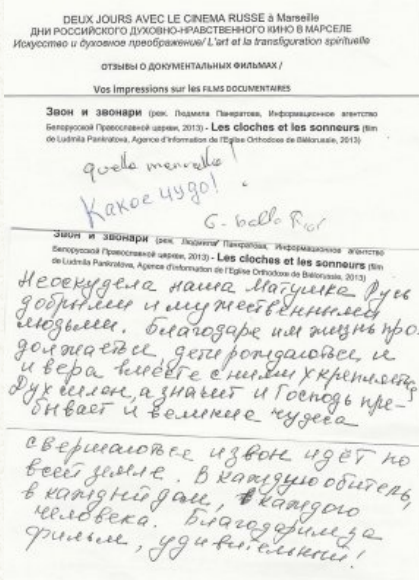 DEUX JOURS AVEC LE CINEMA RUSSE à Marseille
ДНИ РОССИЙСКОГО ДУХОВНО-НРАВСТВЕННОГО КИНО В МАРСЕЛЕ
Искусство и духовное преображение/ L'art et la transfiguration spirituelle
ОТЗЫВЫ О ДОКУМЕНТАЛЬНЫХ ФИЛЬМАХ /
Vos impressions sur les FILMS DOCUMENTAIRES
Звон и звонари (реж. Людмила Панкратова, Информационное агентство
Белорусской Православной церкви, 2013) - Les cloches et les sonneurs (film
de Ludmila Pankratova, Agence d'information de l'Eglise Orthodoxe de Biélorussie, 2013)
quelle merveille!
Какое чудо!
G.
Звон и звонари (реж. Людмила Панкратова, Информационное агентство
Белорусской Православной церкви, 2013) - Les cloches et les sonneurs (film
de Ludmila Pankratova, Agence d'information de l'Eglise Orthodoxe de Biélorussie, 2013)
Неоскудела наша Матушка Русь
добрыми и мужественными
людьми. Благодаре им жизнь про
должается, дети рождаются и
и вера вместе с ними укрепляется
Дух силен, а значит и Господь пре-
бывает и великие чудеса
свершаються и звон идёт по
всей земле. В каждую обитель,
в каждый дом, в каждого
человека. Благодарим за
фильм, удивительный!